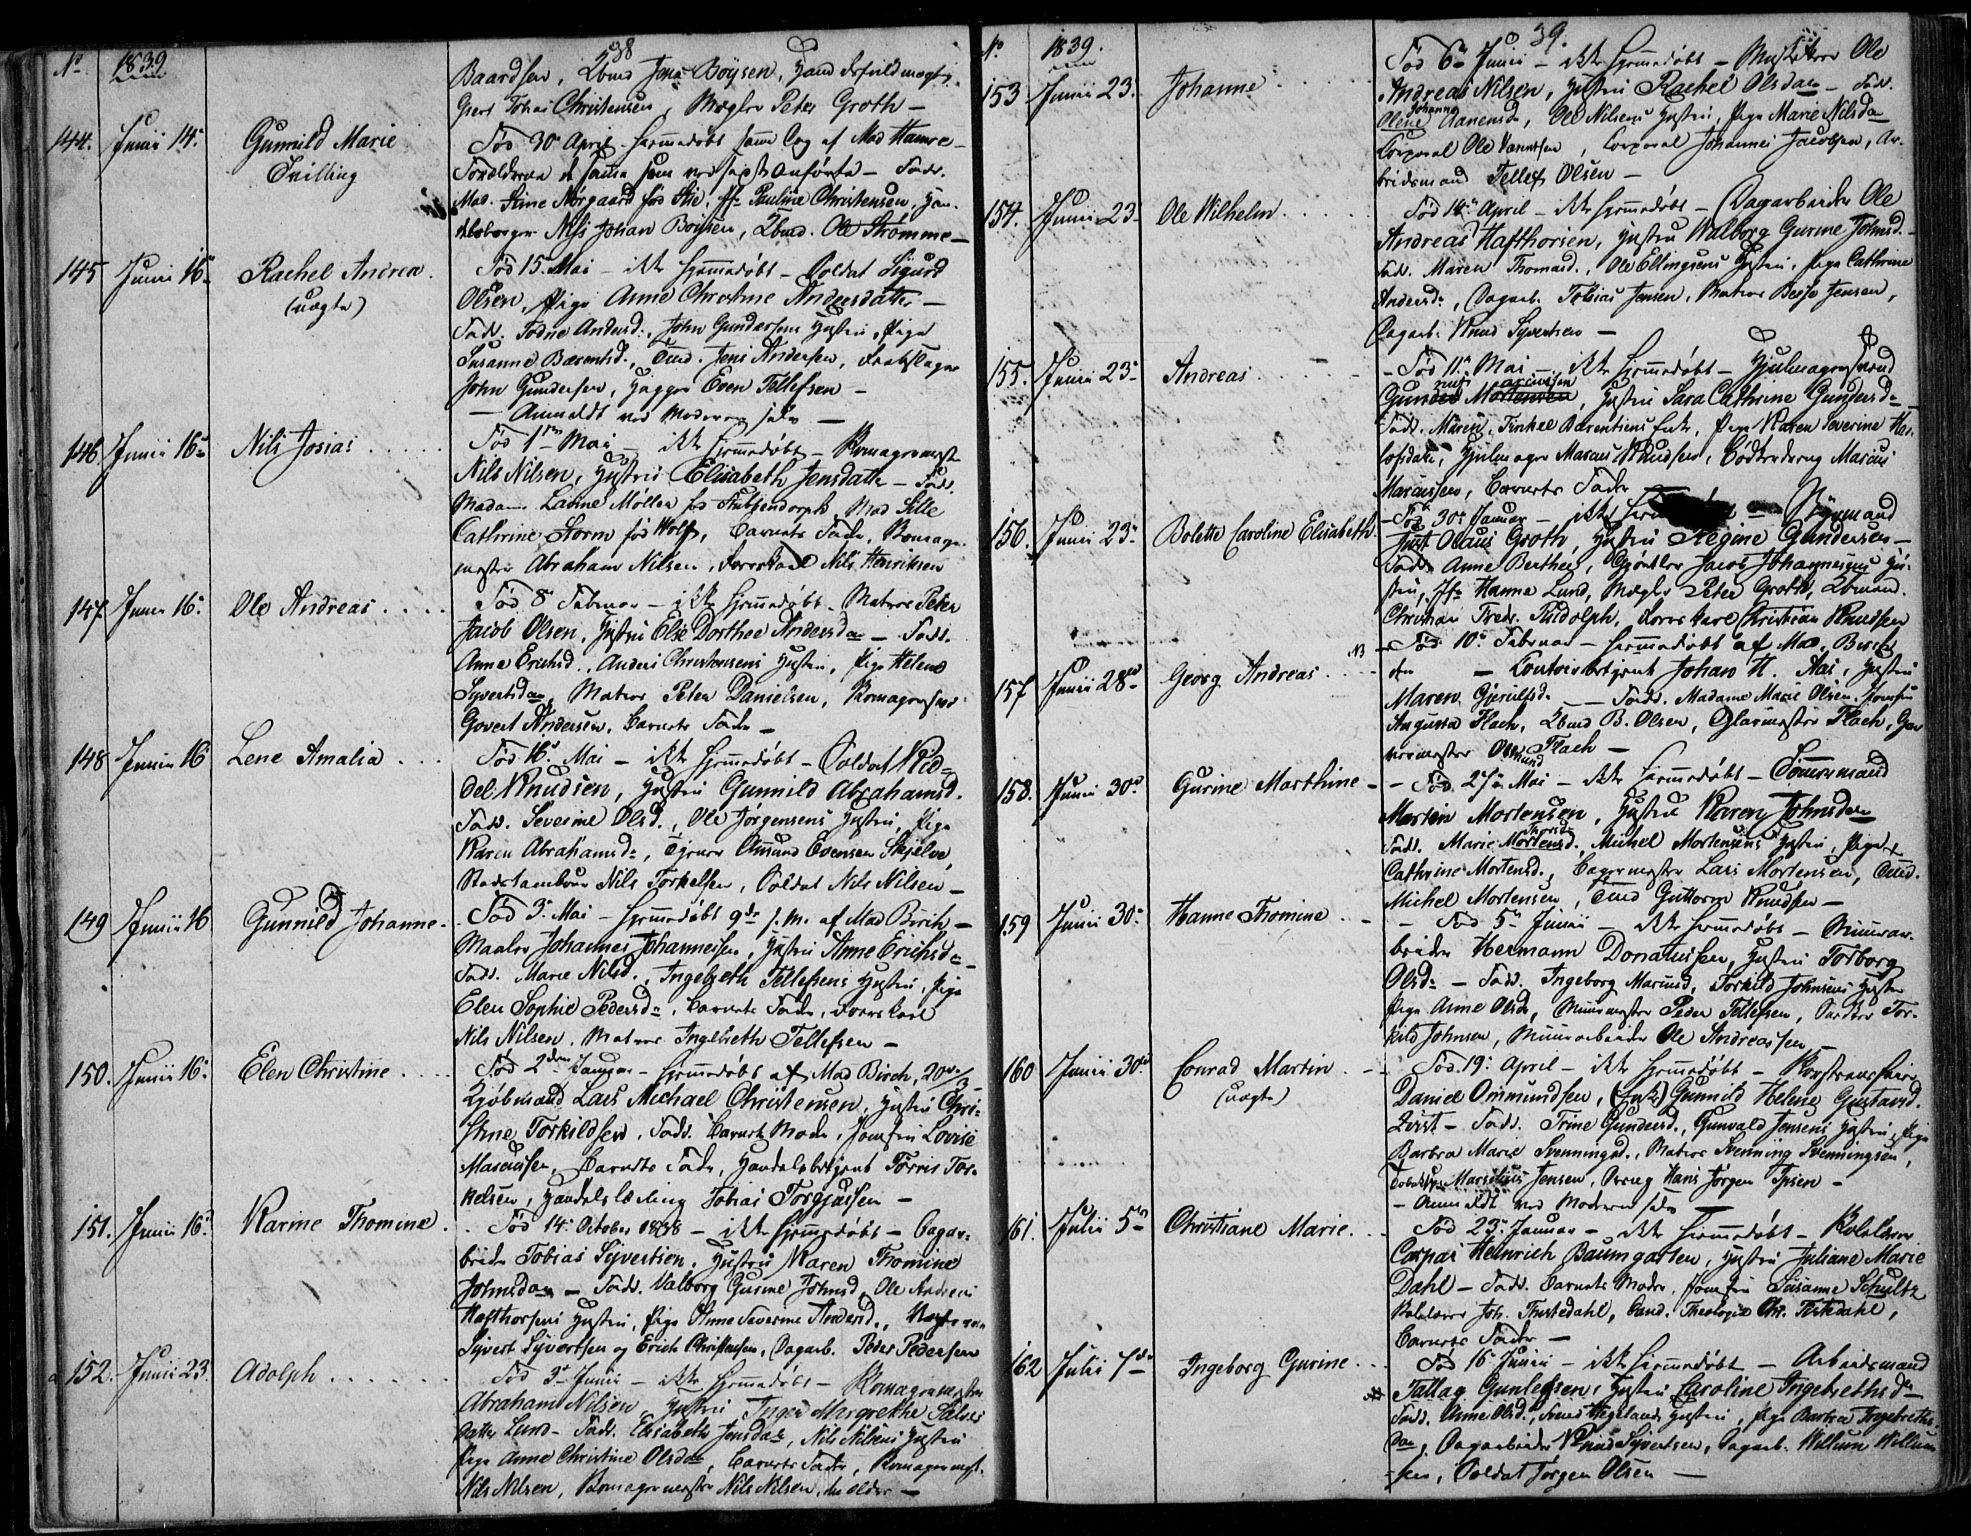 No 1839. 38
Baardsen, Lbmd Jens Boysen, Handelsfuldmægtig
Giert Tobias Christensen, Mægler Peter Groth —
144. Junii 14. Gunnild Marie
Tvilling
Fød 30 April – hjemmedøbt samme Dag af Mad Hamre –
Forældrene de samme som ved sidst anførte – Fadd.
Mad. Stine Nørgaard fød Stie, Jfr. Pauline Christensen, Han-
Nils Johan Boysen, Lbmd. Ole Strømme –
145 Junii 16. Rachel Andrea.
(uægte)
Fød 15 Mai – ikke hjemmedøbt – Soldat Sigurd
Olsen, Pige Anne Christine Andersdatter –
Fadd. Todne Andersd., John Gundersens Hustru, Pige
Susanne Barentsd., Tmd. Jens Andersen,
John Gundersen, Even Tellefsen –
– Anmeldt ved Moderen selv –
146 Junii 16 Nils Josias . . . . .
Fød 1ste Mai – ikke hjemmedøbt – Komagermester
Nils Nilsen, Hustru Elisabeth Jensdatter – Fadd.
Madam Lanne Møller, Mad Sille
Cathrine Storm fød Wolf, Barnets Fader, Komager-
mester Abraham Nilsen, Dorerskarl Nils Henriksen
147. Junii 16. Ole Andreas . . . .
Fød 8 Februar – ikke hjemmedøbt – Matros Peter
Jacob Olsen, Hustru Else Dorthee Andersda – Fadd.
Anne Erichsd., Anders Christensens Hustru, Pige Helene
Syvertsda, Matros Peter Danielsen, Komagersvend
Govert Andersen, Barnets Fader –
148 Junii 16 Lene Amalia . . .
Fød 16 Mai – ikke hjemmedøbt – Soldat Kid-
del Knudsen, Hustru Gunnild Abrahamsd.
Fadd. Severine Olsd., Ole Jørgensens Hustru, Pige
Karen Abrahamsd., Tjener Amund Evensen Skjelve,
Stadstambour Nils Torkelsen, Soldat Nils Nilsen –
149 Junii 16 Gunnild Johanne.
Fød 3. Mai – hjemmedøbt 9de s.M. af Mad Birch, –
Maaler Johannes Johannesen, Hustru Anne Erichsd. –
Fadd. Marie Nilsd., Ingebreth Tellefsens Hustru, Pige
Elen Sophie Pedersd., Barnets Fader, Dorerskarl
Nils Nilsen, Matros Ingebreth Tellefsen –
150. Junii 16. Elen Christine . . . .
Fød 2den Januar – hjemmedøbt af Mad Birch, 20de/3 –
Kjøbmand Lars Michael Christensen, Hustru Chri-
stine Torkildsen, Fadd. Barnets Moder, Jomfru Lovise
Marcussen, Barnets Fader, Handelsbetjent Torris Tor-
kelsen, Handelslærling Tobias Torgjussen –
151. Junii 16. Karine Thomine.
Fød 14. October 1838 – ikke hjemmedøbt – Dagar-
beider Tobias Syvertsen, Hustru Maren Thomine
Johnsda – Fadd. Valborg Gurine Johnsd, Ole Andreas
Hafthorsens Hustru, Pige Anne Severine Andersd.,
Syvert Syvertsen og Erich Christensen, Dagarb. Peder Pedersen
152. Junii 23 Adolph . . . . . .
Fød 3 Junii – ikke hjemmedøbt – Komagermester
Abraham Nilsen, Hustru Inger Margrethe Salves
datter Lund – Fadd. Elisabeth Jensda, Nils Nilsens Hustru
Pige Anne Christine Olsda, Barnets Fader, Komagermest.
Nils Nilsen, Komagermester Nils Nilsen, den ældre –
No 1839. 39.
153 Junii 23. Johanne .
Fød 6 Junii – ikke hjemmedøbt – Musketeer Ole
Andreas Nilsen, Hustru Rachel Olsda – Fadd.
Johanne
Olene Aanensd., Ole Nilsens Hustru, Pige Marie Nilsda
Corporal Ole, Corporal Johannes Jacobsen, Ar-
beidsmand Tellef Olsen –
154. Junii 23 Ole Wilhelm . . . . .
Fød 14 April – ikke hjemmedøbt – Dagarbeider Ole
Andreas Hafthorsen, Hustru Walborg Gurine Johnsd. –
Fadd. Maren Thomasd., Ole Ellingsens Hustru, Pige Cathrine
Andersd., Dagarb. Tobias Jensen, Matros Jensen,
Dagarb. Knud Syvertsen –
155. Junii 23 Andreas . . . .
– Fød 11. Mai – ikke hjemmedøbt – Hjulmagersvend
Gunder Mortensen, Hustru Sara Cathrine Gundersd.
Fadd. Maren, Tinkel Barentsens Enke, Pige Karen Severine Her-
lofsdatter, Hjulmager Marcus Knudsen, Bødkerdreng Marcus
Marcussen, Barnets Fader –
156. Junii 23. Bolette Caroline Elisabeth.
– Fød 30 Januar – ikke – Styrmand
Just Olaus Groth, Hustru Regine Gundersen –
Fadd. Anne Berthea, Gjørtler Jacob Johannesens Hu-
stru, Jfr. Hanna Lund, Mægler Peter Groth, Lbmand.
Christian Fredr. Rudolph, Dorerskarl Christian Knudsen
157 Junii 28de Georg Andreas . . . NB
– Fød 10 Februar – hjemmedøbt af Mad. Birch
den – Contoirbetjent Johan H. Aas, Hustru
Maren Gjerulfsd. – Fadd. Madame Marie Olsen, Jomfru
Augusta Flach, Lbmd B. Olsen, Glarmester Flach, Gar-
vermester Omund Flach –
158. Junii 30. Gurine Marthine –
– Fød 27 Mai – ikke hjemmedøbt – Tømmermand
Morten Mortensen, Hustru Karen Johnsda
Fadd. Marie Mortensd., Michel Mortensens Hustru, Pige
Cathrine Mortensd., Bagermester Lars Mortensen, Tmd.
Michel Mortensen, Tmd Guttorm Knudsen –
159 Junii 30. Hanne Tomine . . .
– Fød 5 Junii – ikke hjemmedøbt – Muurar-
beider Hermann Donatussen, Hustru Torborg
Olsd. – Fadd. Ingeborg Mariusd, Torkild Johnsens Hustru
Pige Anne Olsda, Muurmester Peder Tellefsen, Tor-
kild Johnsen, Muurarbeider Ole Andreassen –
160 Junii 30 Conrad Martin . . .
(uægte)
Fød 19. April – ikke hjemmedøbt –
Daniel Ommundsen, (Enke) Gunnild Helene Gjustavd.
Qvist – Fadd. Trine Gundersd., Gunvald Jensens Hustru, Pige
Barbra Marie Svenningsd., Matros Svenning Svenningsen,
Marselius Jensen, Dreng Hans Jørgen Ipsen –
– Anmeldt ved Moderen selv –
161. Julii 5te Christiane Marie. . .
Fød 23 Januar – ikke hjemmedøbt –
Caspar Heinrich Baumgarten, Hustru Juliane Marie
Dahl – Fadd. Barnets Moder, Jomfru Susanne Schultz
Joh. Tistedahl, Cand. Theologie Chr. Tistedahl,
Barnets Fader –
162 Julii 7de Ingeborg Gurine. . .
Fød 16 Junii – ikke hjemmedøbt – Arbeidsmand
Tallag Gunlefsen, Hustru Caroline Ingebrethsd.
Fadd. Anne Olsd., Svend Hegelands Hustru, Pige Barbra Ingebreths-
da, Dagarbeider Knud Syvertsen, Dagarb. Willum Willum-
sen, Soldat Jørgen Olsen –